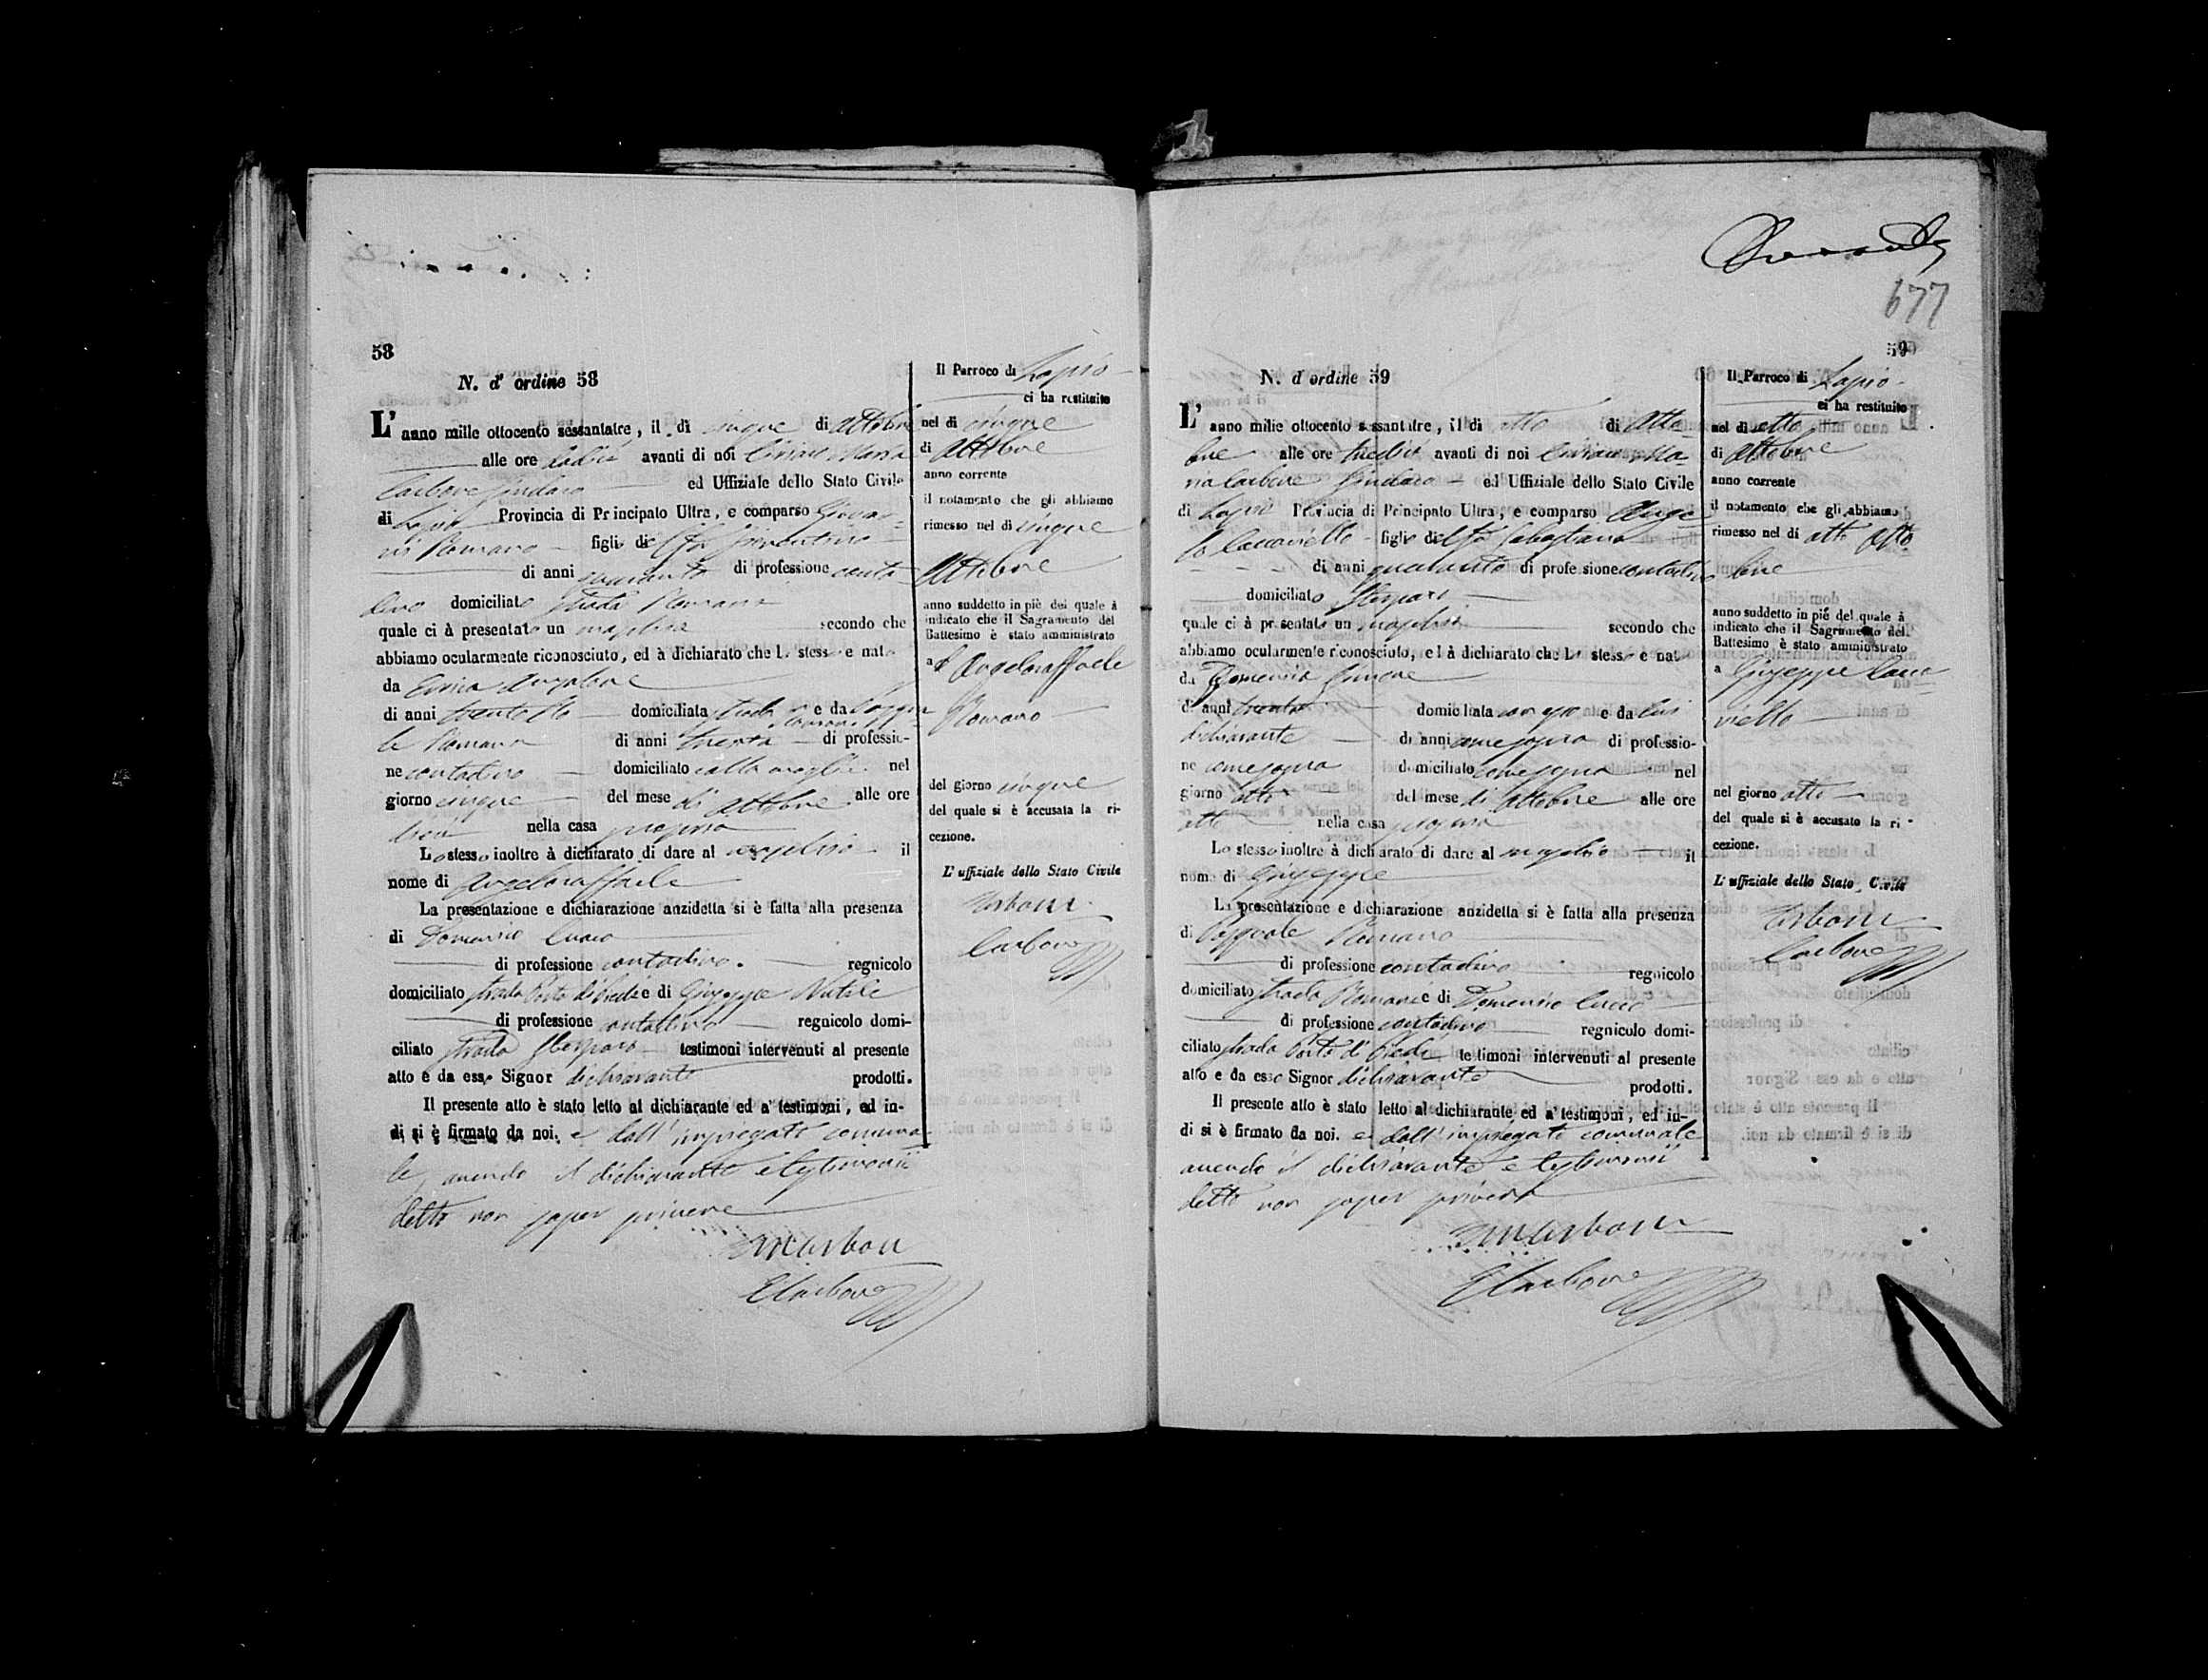 677
58
N. d' ordine 58
L' anno mille ottocento sessantatre, il dì cinque di Ottobre
alle ore avanti di noi Ciriaco Maria
Carbone Sindaco ed Uffiziale dello Stato Civile
di Lapio Provincia di Principato Ultra, e comparso Giovan-
ni Romano figlio di Fiorentino
di anni di professione conta-
dino domiciliato strada Romano
quale ci à presentato un maschio secondo che
abbiamo ocularmente riconosciuto, ed à dichiarato che lo stesso e nato
da
di anni trentotto domiciliata strada Romano e da
le Romano di anni trenta di professio-
ne contadino domiciliato colla moglie nel
giorno cinque del mese di Ottobre alle ore
dieci nella casa propria
Lo stesso inoltre à dichiarato di dare al maschio il
nome di Angeloraffaele
La presentazione e dichiarazione anzidetta si è fatta alla presenza
di Domenico
di professione contadino. regnicolo
domiciliato strada Porta di Piedi e di Giuseppe Natale
di professione contadino regnicolo domi-
ciliato strada testimoni intervenuti al presente
atto e da esso Signor dichiarante prodotti.
Il presente atto è stato letto al dichiarante ed a' testimoni, ed in-
di si è firmato da noi. e dall' impiegato comuna
le, avendo il dichiarante e testimonii
detto non saper scrivere
Carbone
Carbone
Il Parroco di Lapio
ci ha restituito
nel dì cinque
di Ottobre
anno corrente
il notamento che gli abbiamo
rimesso nel dì cinque
Ottobre
anno suddetto in piè del quale à
indicato che il Sagramento del
Battesimo è stato amministrato
a Angeloraffaele
Romano
del giorno cinque
del quale si è accusata la ri-
cezione.
L' uffiziale dello Stato Civile
Carbone
Carbone
59
N. d' ordine 59
L' anno mille ottocento sessantatre, il dì otto di Otto-
bre alle ore tredici avanti di noi Ciriaco Ma-
ria Carbone Sindaco ed Uffiziale dello Stato Civile
di Lapio Provincia di Principato Ultra, e comparso Ange
lo Caccaviello figlio di Sabastiano
di anni quaranta di professione contadino
domiciliato
quale ci à presentato un maschio secondo che
abbiamo ocularmente riconosciuto, ed à dichiarato che lo stesso e nato
da Domenica
di anni trenta domiciliata con esso e da lui
dichiarante di anni come sopra di professio-
ne come sopra domiciliato come sopra nel
giorno otto del mese di Ottobre alle ore
otto nella casa propria
Lo stesso inoltre à dichiarato di dare al maschio il
nome di Giuseppe
La presentazione e dichiarazione anzidetta si è fatta alla presenza
di Pasquale Romano
di professione contadino regnicolo
domiciliato strada Romano e di Domenico
di professione contadino regnicolo domi-
ciliato strada Porta di Piedi testimoni intervenuti al presente
atto e da esso Signor dichiarante prodotti.
Il presente atto è stato letto al dichiarante ed a' testimoni, ed in-
di si è firmato da noi. e dall' impiegato comunale
avendo il dichiarante e testimonii
detto non saper scrivere
Carbone
Carbone
Il Parroco di Lapio
ci ha restituito
nel dì otto
di Ottobre
anno corrente
il notamento che gli abbiamo
rimesso nel dì otto Otto
bre
anno suddetto in piè del quale à
indicato che il Sagramento del
Battesimo è stato amministrato
a Giuseppe Cacca
viello
nel giorno otto
del quale si è accusato la ri-
cezione.
L' uffiziale dello Stato Civile
Carbone
Carbone